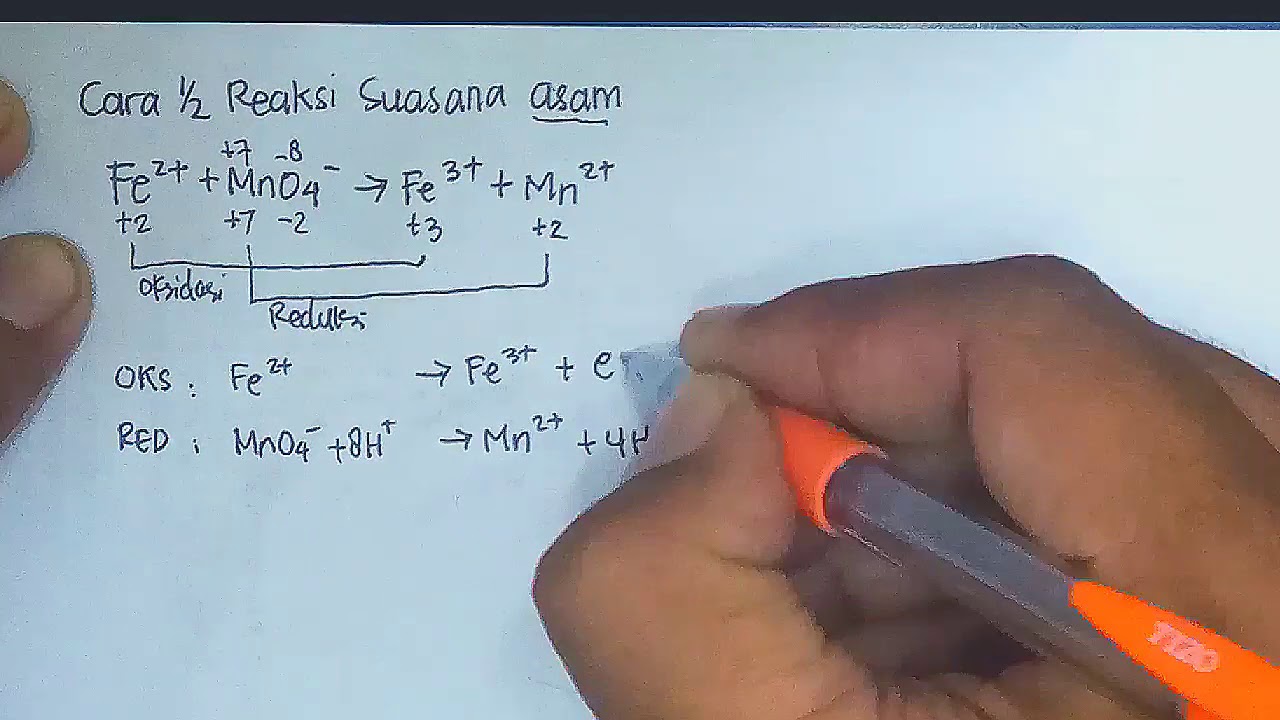 Cara ½ Reaksi Suasana asam
+7 -8
Fe²⁺ + MnO₄⁻ → Fe³⁺ + Mn²⁺
+2 +7 -2 +3 +2
Oksidasi
Reduksi
OKS : Fe²⁺ → Fe³⁺ + e
RED : MnO₄⁻ + 8H⁺ → Mn²⁺ + 4H
TIZO